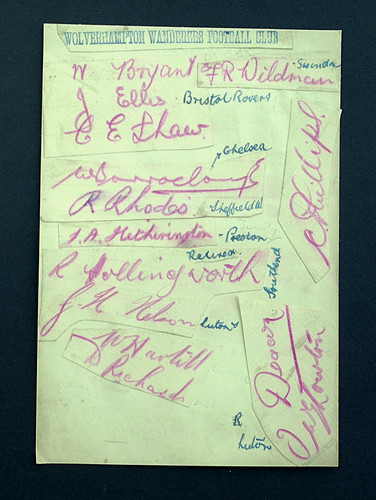 WOLVERHAMPTON WANDERERS FOOTBALL CLUB
W Bryant
F R Wildman
Swindon
J Ellis
Bristol Rovers
C E Shaw.
Chelsea
W Barraclough
R Rhodes
Sheffield W
J. A. Hetherington - Preston
Retired.
R Hollingworth
J H Nelson
Luton
W Hartill
D Richards
C. Phillips.
Southend
Deacon
Lowton
R
Luton